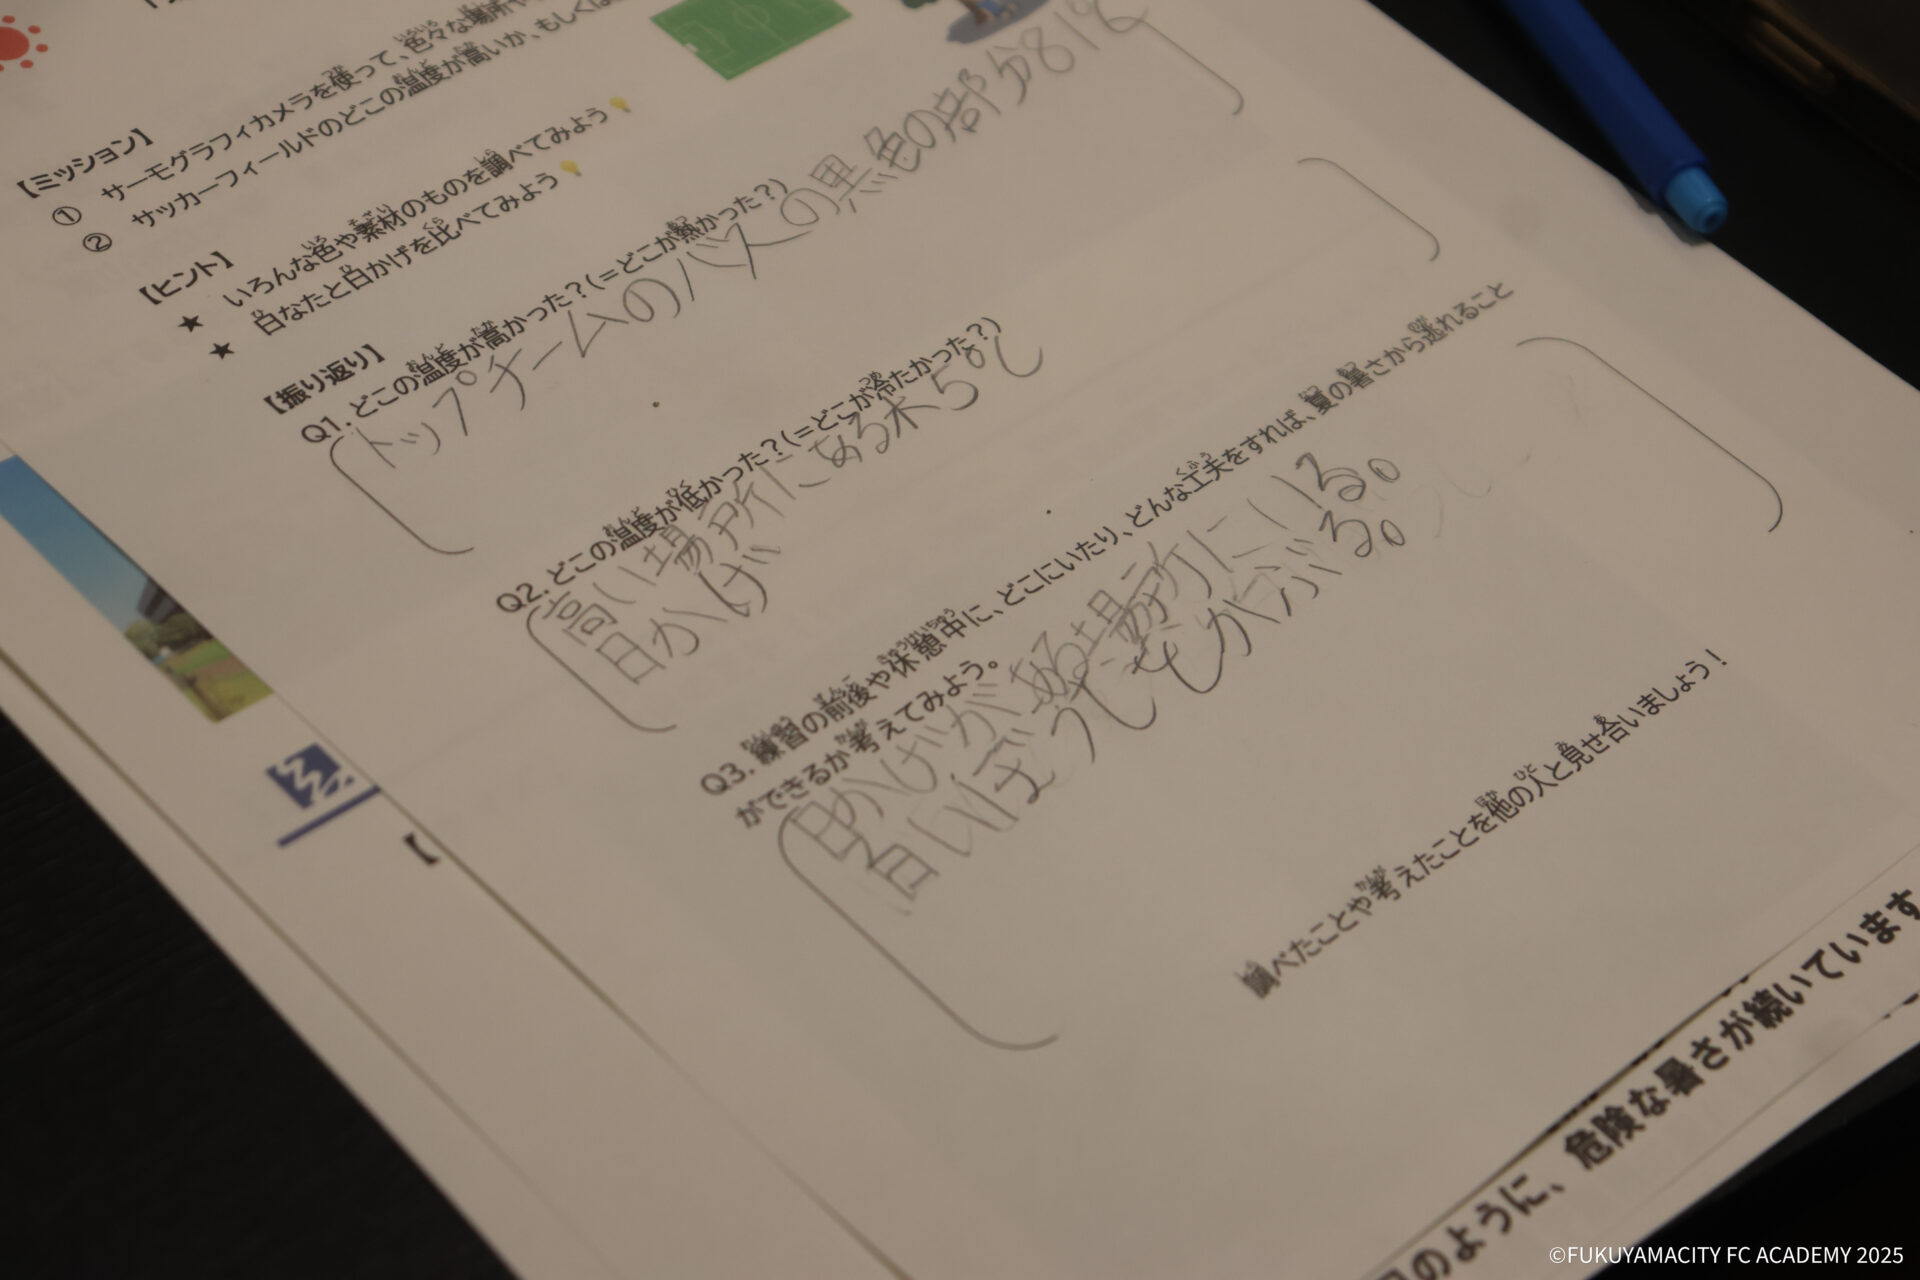 【ミッション】
① サーモグラフィカメラを使って、色々な場所や
② サッカーフィールドのどこの温度が高いか、もしくは
【ヒント】
★ いろんな色や素材のものを調べてみよう
★ 日なたと日かげを比べてみよう
【振り返り】
Q1. どこの温度が高かった？(=どこが熱かった？)
トップチームのバスの黒色の部分81℃
Q2. どこの温度が低かった？(=どこが冷たかった？)
高い場所にある木5℃
日かげ
Q3. 練習の前後や休憩中に、どこにいたり、どんな工夫をすれば、夏の暑さから逃れること
ができるか考えてみよう。
日かげがある場所にいる。
白いぼうしをかぶる。
調べたことや考えたことを他の人と見せ合いましょう！
【
のように、危険な暑さが続いています
©FUKUYAMACITY FC ACADEMY 2025